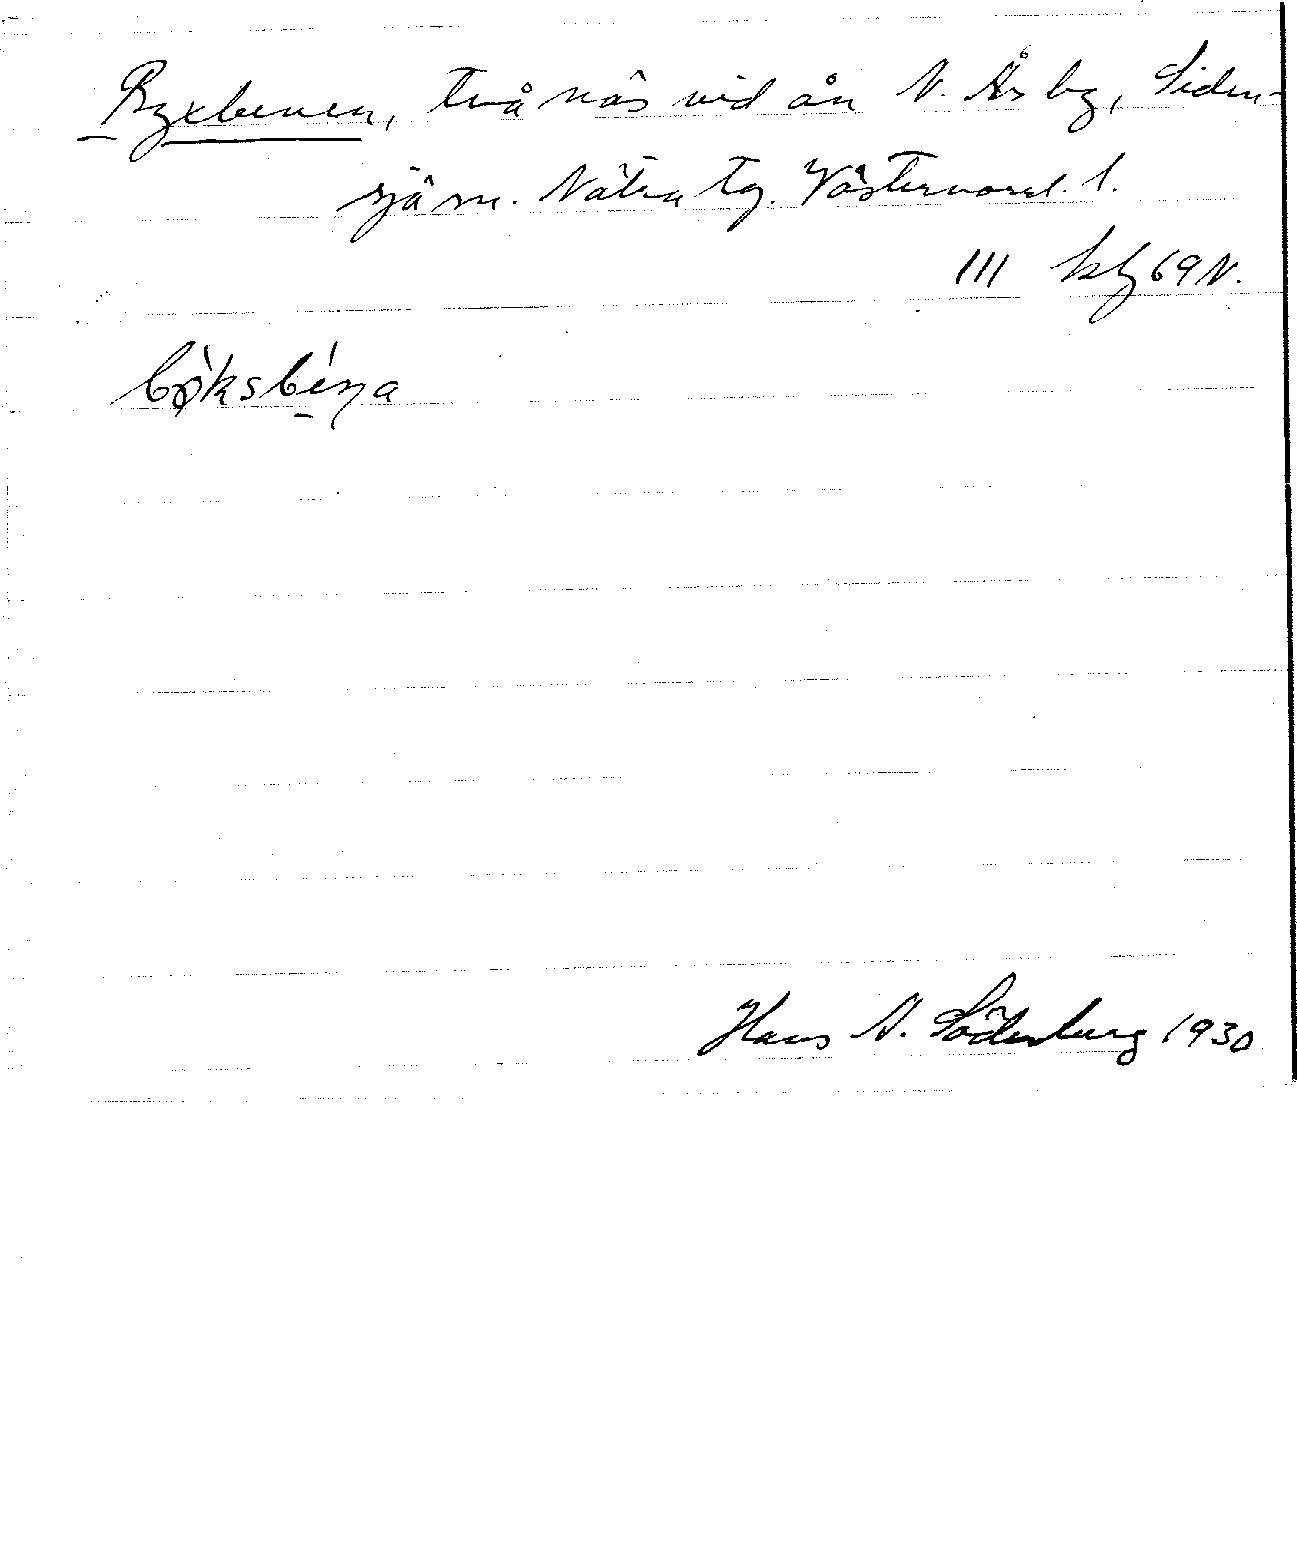 Byxbenen, två näs vid ån N. Ås by, Siden-
sjö sn. Nätra tg. Västernorrl. l.
III kbg 69 N.
bø̀ksbéna
Hans N. Söderberg 1930